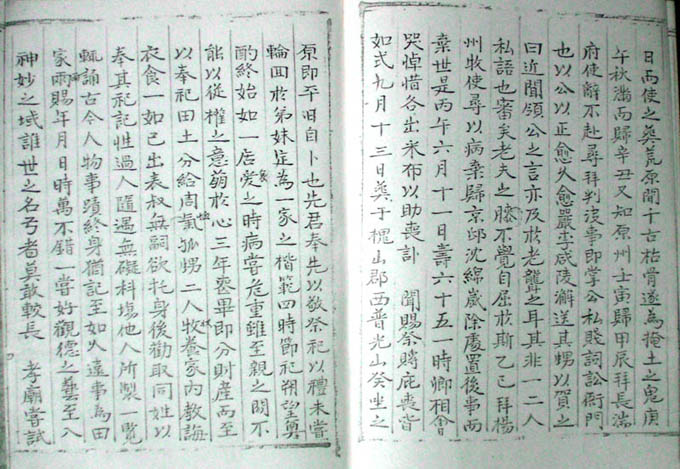 日而使之奠荒原間十古枯骨遂為掩土之鬼庚
午秋滿而歸辛丑又知原州壬寅歸甲辰拜長湍
府使辭不赴尋拜判決事即掌公私賤詞訟衙門
也以公以正愈久愈嚴李咸陵澥送其甥以賀之
曰近聞領公之言亦及於老聾之耳其非一二人
私語也審矣老夫之膝不覺自屈於斯乙巳拜楊
州牧使尋以病棄歸京邸沈綿歲除處置後事而
棄世是丙午六月十一日壽六十五一時卿相會
哭悼惜各出米布以助喪訃 聞賜祭賻庇喪皆
如式九月十三日葬于槐山郡西普光山癸坐之
原即平旧自卜也先君奉先以敬祭祀以禮未嘗
輪回於弟妹為一家之楷範四時節祀朔望奠
酌終始如一居之時病嘗危重雖至親之間不
能以從權之意萌於心三年喪畢即分財產而至
以奉祀田土分給周孤甥二人牧養家內教誨
衣食一如己出表叔無嗣欲托身後勸取同姓以
奉其祀記性過人隨遇無礙科場他人所製一覽
輒誦古今人物事蹟終身猶記至如久遠事為田
家雨暘年月日時萬不錯一嘗好觀德之藝至入
神妙之域誰世之名弓者莫敢較長 孝廟嘗試